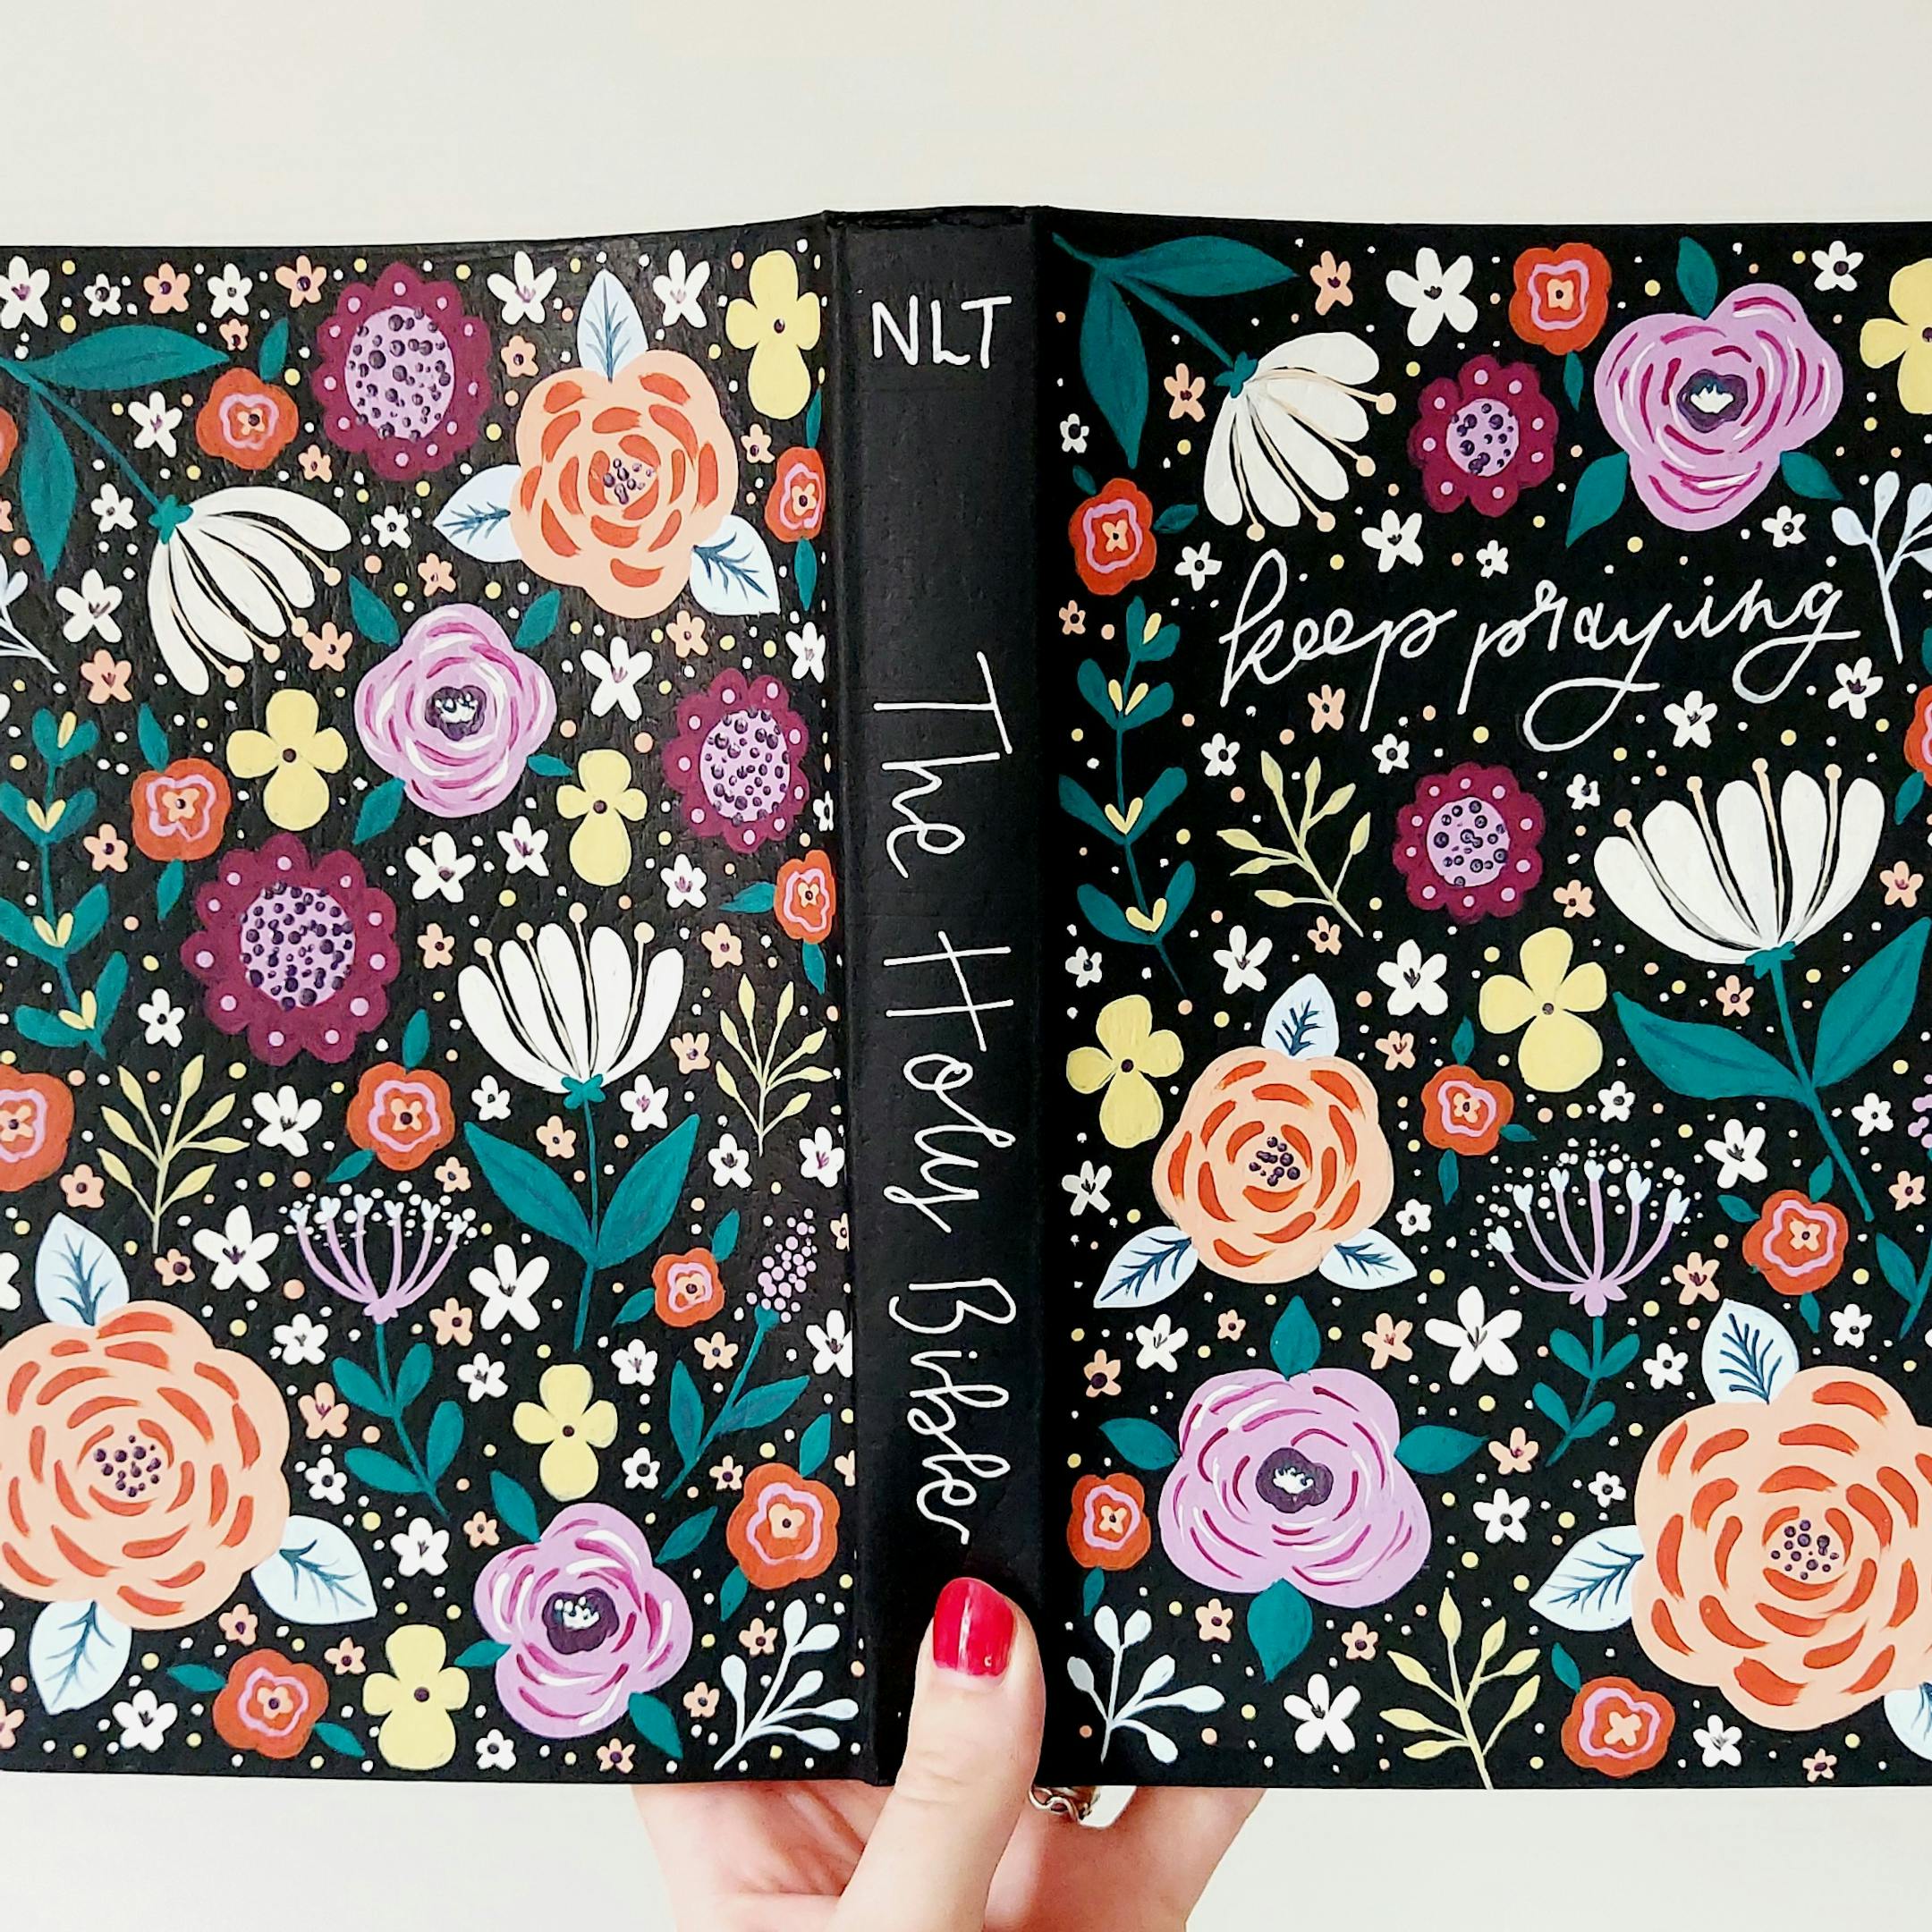 NLT
The Holy Bible
keep praying